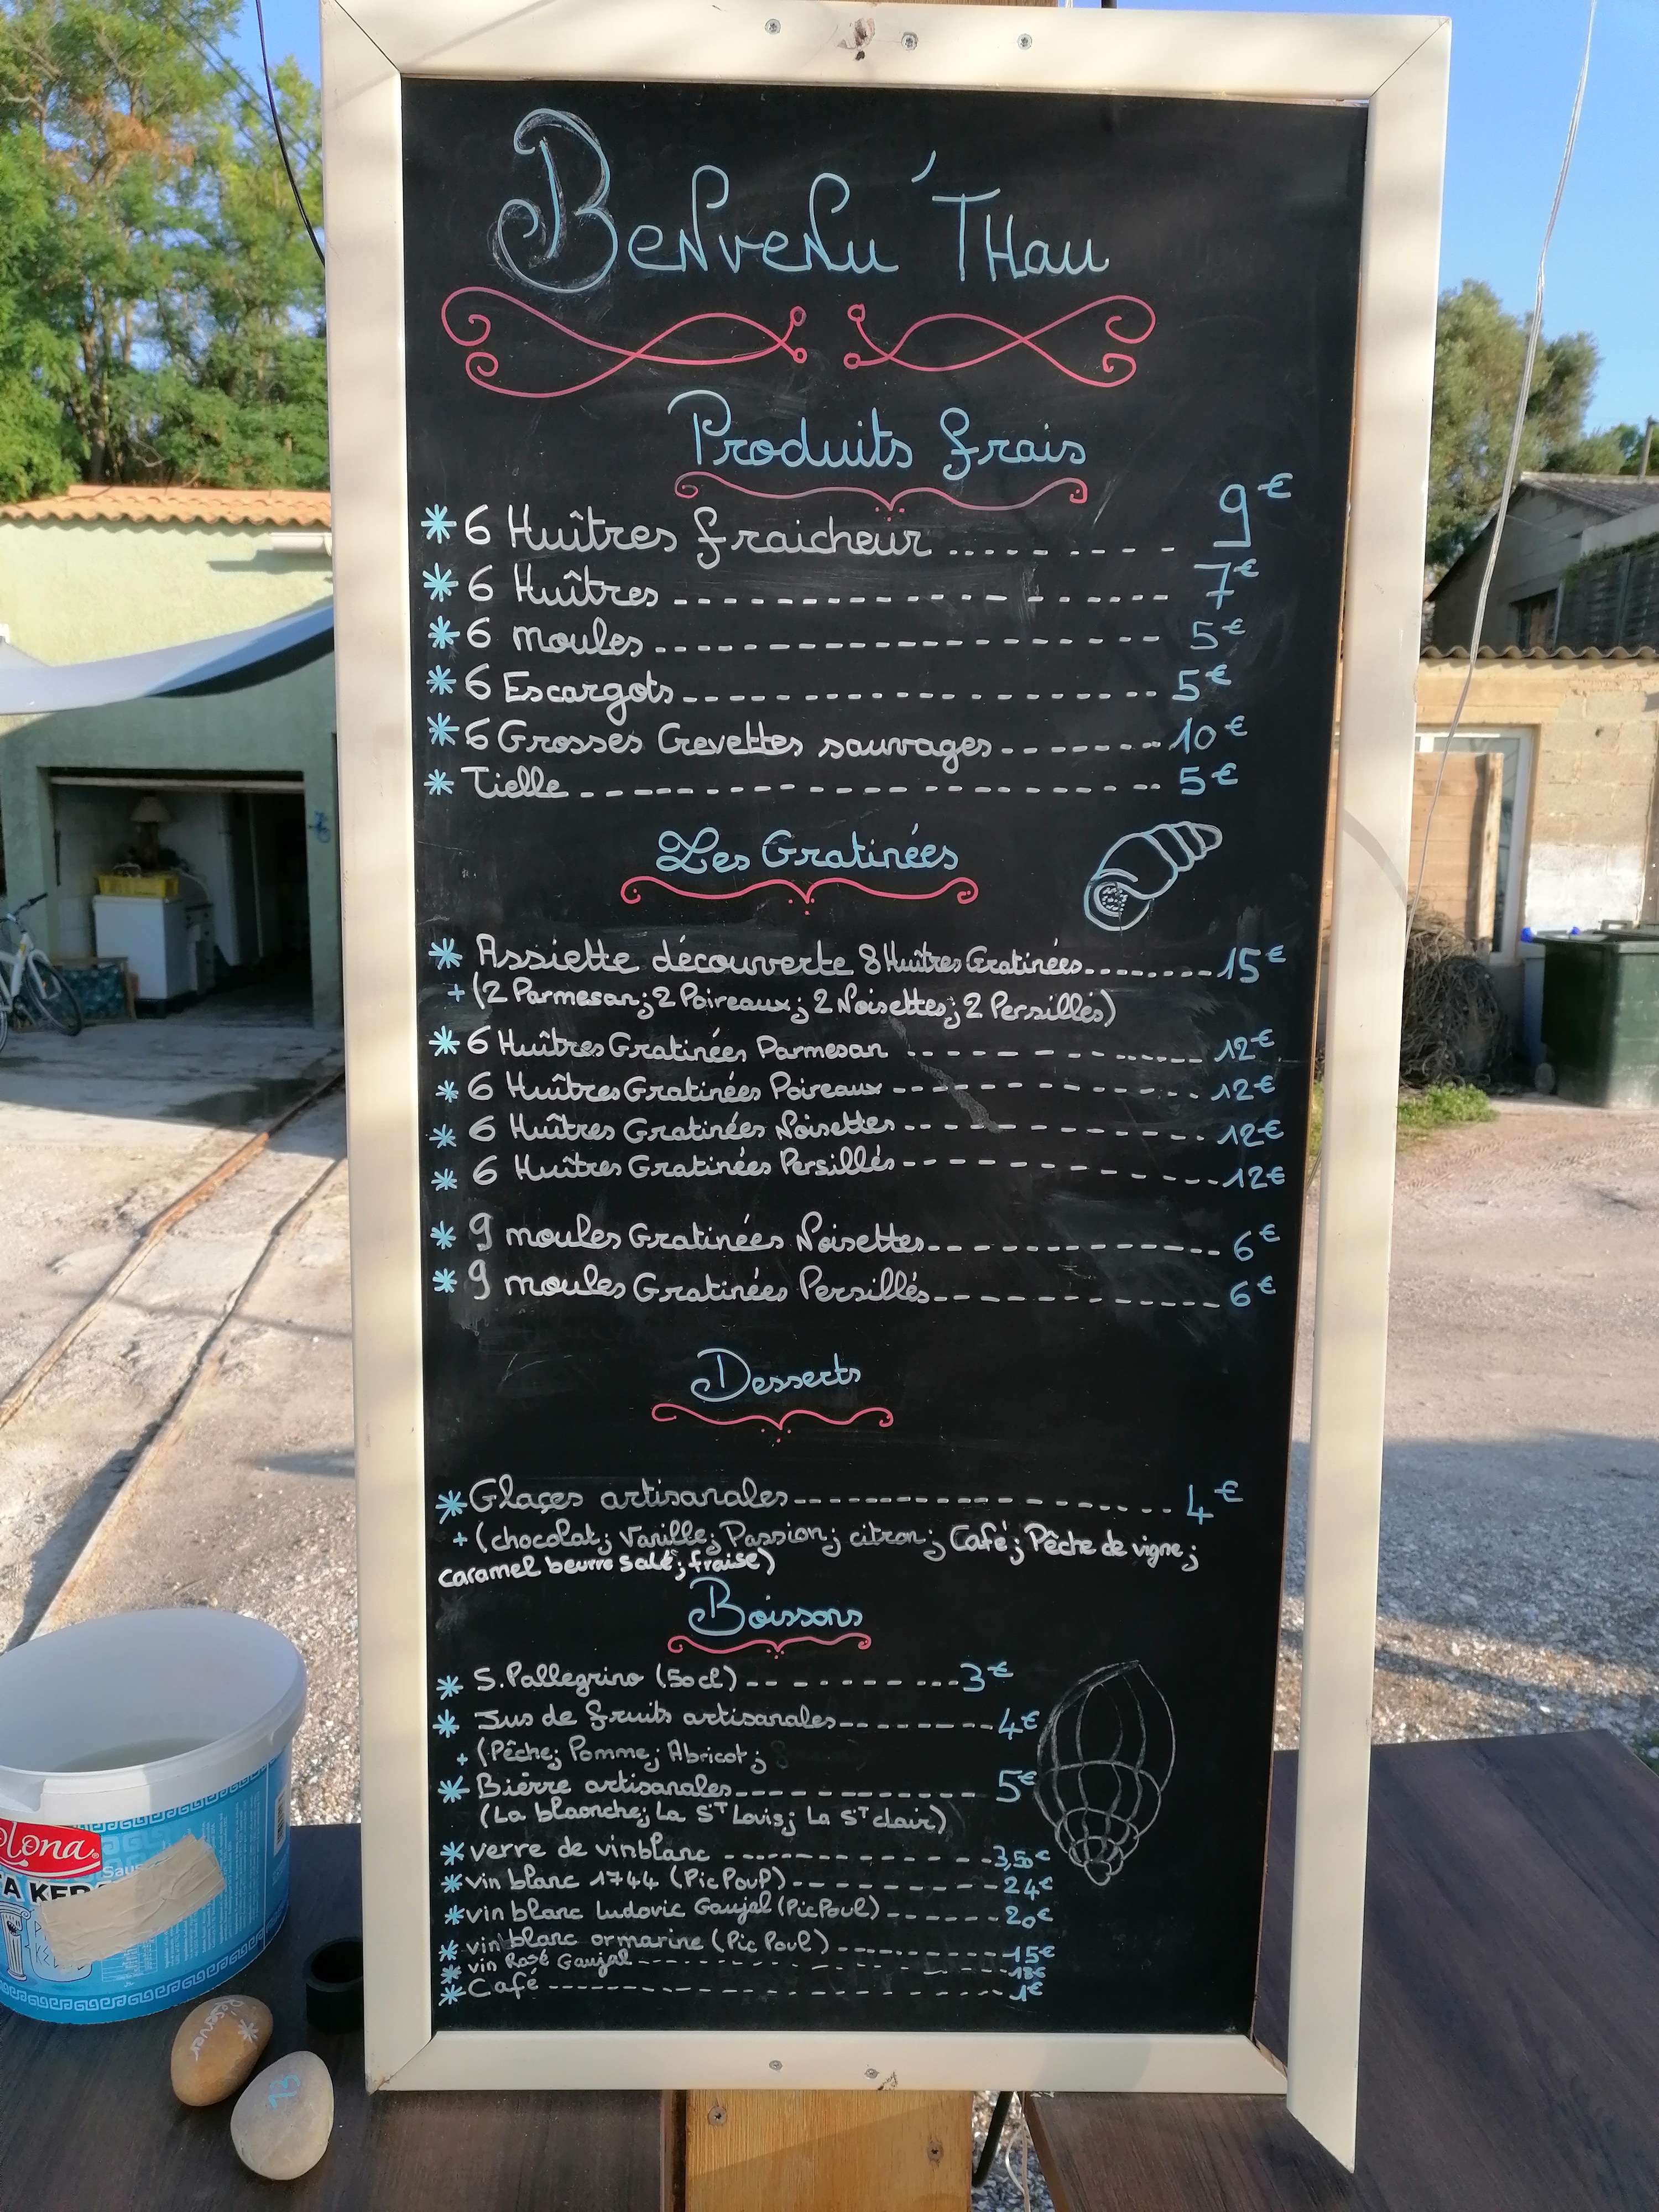 Benvenu'Thau
Produits frais
* 6 Huîtres fraicheur ........ 9€
* 6 Huîtres ---------------- 7€
* 6 moules ---------------- 5€
* 6 Escargots ---------------- 5€
* 6 Grosses Crevettes sauvages ------- 10€
* Tielle -------------------- 5€
Les Gratinées
* Assiette découverte 8 Huîtres Gratinées ........ 15€
+ (2 Parmesan; 2 Poireaux; 2 Noisettes; 2 Persillés)
* 6 Huîtres Gratinées Parmesan ------------ 12€
* 6 Huîtres Gratinées Poireaux ------------ 12€
* 6 Huîtres Gratinées Noisettes ------------ 12€
* 6 Huîtres Gratinées Persillés ------------ 12€
* 9 moules Gratinées Noisettes ------------ 6€
* 9 moules Gratinées Persillés ------------ 6€
Desserts
* Glaçes artisanales ------------------ 4€
+ (chocolat; Vanille; Passion; citron; Café; Pêche de vigne;
caramel beurre salé; fraise)
Boissons
* S.Pallegrino (50cl) --------- 3€
* Jus de fruits artisanales --------- 4€
+ (Pêche; Pomme; Abricot;
* Bièrre artisanales ------------ 5€
(La blaonche; La ST Louis; La ST clair)
* verre de vin blanc ------------ 3,50€
* vin blanc 1744 (Pic Poul) --------- 24€
* vin blanc Ludovic Gaujal (Pic Poul) ------ 20€
* vin blanc ormarine (Pic Poul) --------- 15€
* vin Rosé Gaujal ------------ 18€
* Café ------------------ 1€
lona
Sau
A KE
réserver
*